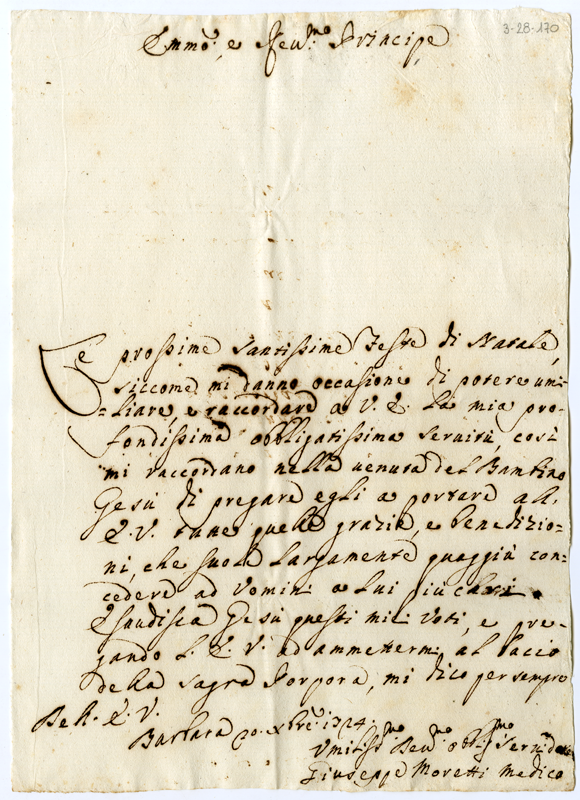 3-28-170
Emmo. e Revmo. Principe
Le prossime santissime Feste di Natale,
siccome mi danno occasione di potere umi-
=liare, e raccordare a V. E. la mia pro-
fondissima obbligatissima servitù così
mi raccordano nella venuta del Bambino
Gesù di pregare egli a portare all'
E. V. tutte quelle grazie, e benedizio-
ni, che suole largamente quaggiù con=
cedere ad Uomini a lui più cari.
Esaudisca Gesù questi miei voti, e pre-
gando L. E. V. ad ammettermi al bacio
della Sagra Porpora, mi dico per sempre
Dell. E. V.
Barbara 20. Xbre. 1724.
Umilissmo Devmo obbligmo Serv.
Giuseppe Moretti Medico